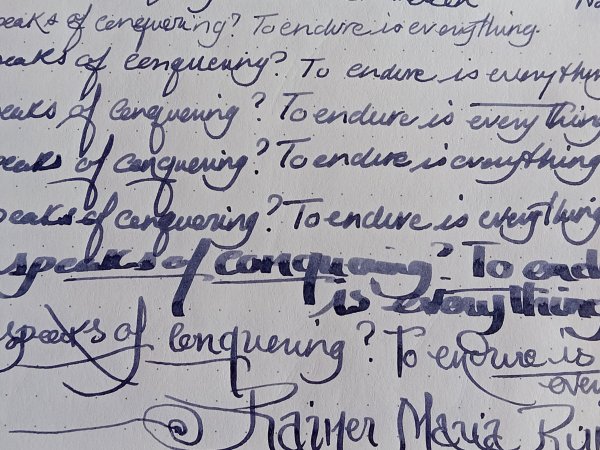 speaks of conquering? To endure is everything.
speaks of conquering? To endure is everything
speaks of conquering? To endure is everything
speaks of conquering? To endure is everything
speaks of conquering? To endure is everything
speaks of conquering? To end
is everything
speaks of conquering? To endure is
ever
Rainer Maria Ril